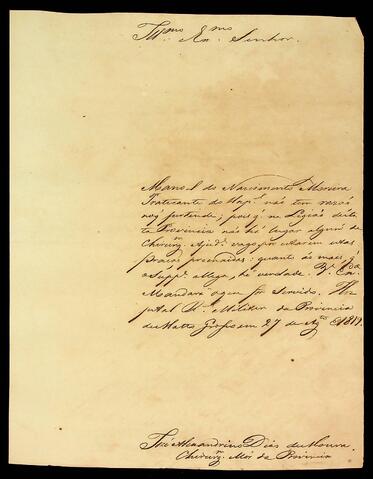 Illmo. Exmo. Senhor.
Manoel do Nascimento Moreira
Praticante do Hospl. não tem rezão
no q pertende; pois q. na Legião desta
Provincia não há lugar algum de
Chirurgm. Ajude. vago por estarem estas
praças preenxidas: quanto ás mais q
o Suppe. Alega, hé verdade. V. Exa.
Mandará o que for Servido.
Hospital Rl. Militar da Provincia
de Matto Groço em 27 de Agto. 1819.
José Alexandrino Dias de Moura
Chirurgm. Mór da Provincia